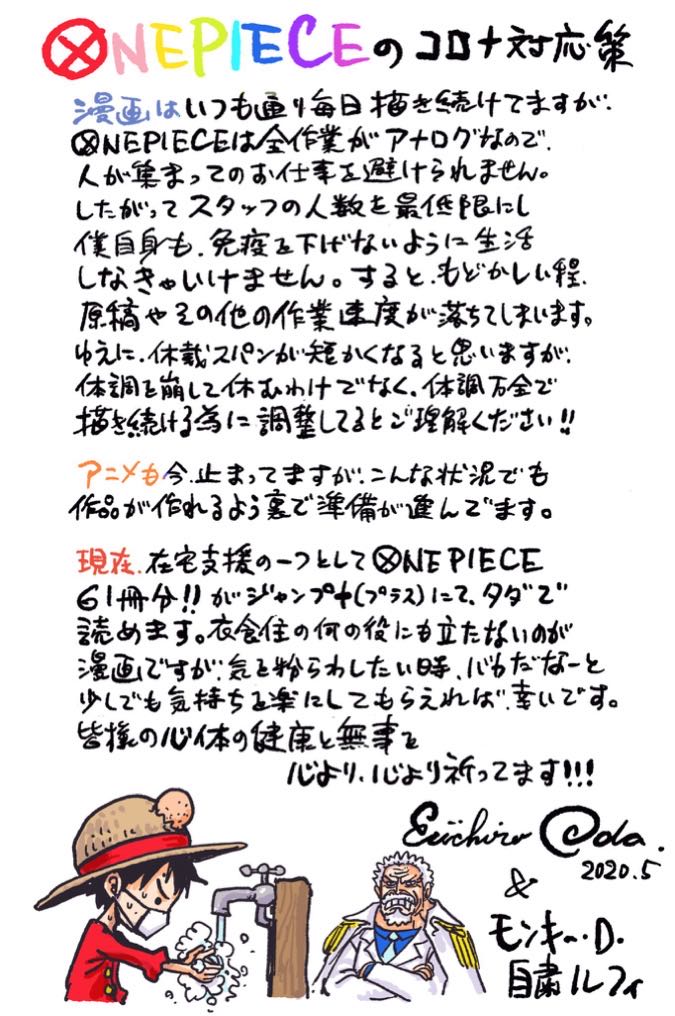 ONEPIECEのコロナ対応策
漫画はいつも通り毎日描き続けてますが、
ONEPIECEは全作業がアナログなので、
人が集まってのお仕事を避けられません。
したがってスタッフの人数を最低限にし
僕自身も、免疫を下げないように生活
しなきゃいけません。すると、もどかしい程、
原稿やその他の作業速度が落ちてしまいます。
ゆえに、休載スパンが短かくなると思いますが、
体調を崩して休むわけでなく、体調万全で
描き続ける為に調整してるとご理解ください!!
アニメも今、止まってますが、こんな状況でも
作品が作れるよう裏で準備が進んでます。
現在、在宅支援の一つとしてONEPIECE
61冊分!!がジャンプ+(プラス)にて、タダで
読めます。衣食住の何の役にも立たないのが
漫画ですが、気を紛らわしたい時、バカだなーと
少しでも気持ちを楽にしてもらえれば、幸いです。
皆様の心体の健康と無事を
心より、心より祈ってます!!!
Eiichiro Oda.
2020.5
&
モンキー・D・
自粛ルフィ